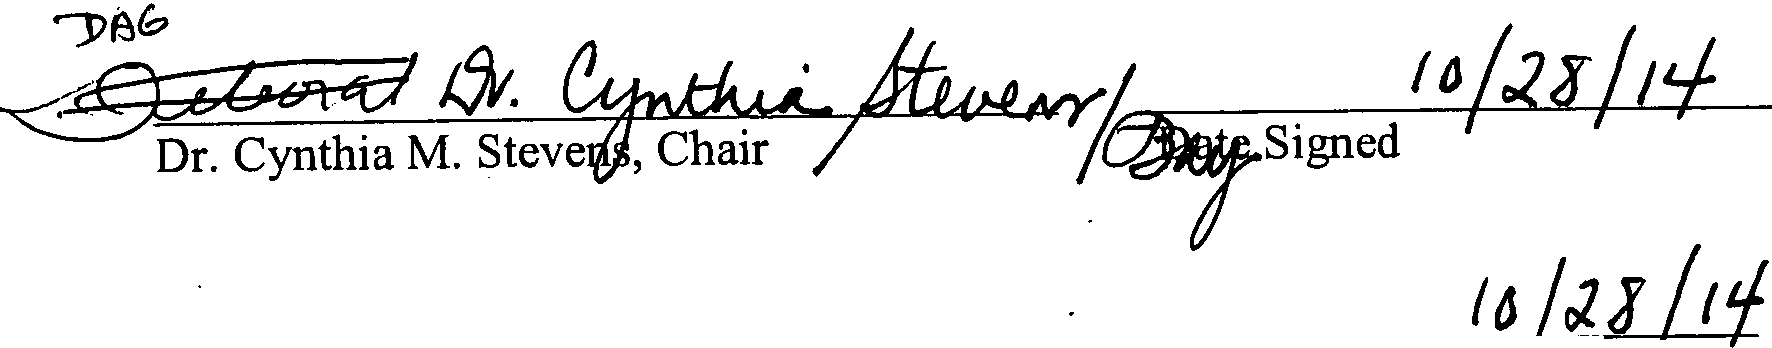 DAG
Deborah Dr. Cynthia Stevens/ 10/28/14
Dr. Cynthia M. Stevens, Chair Date Signed
10/28/14